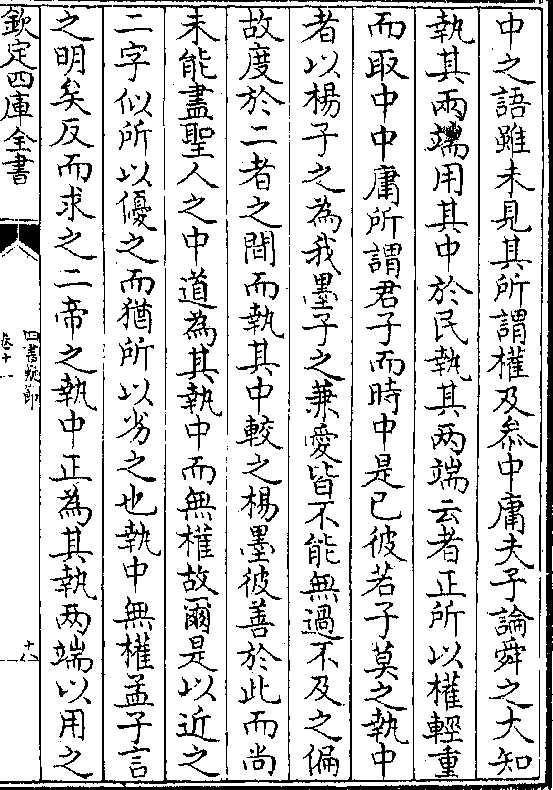 中之語雖未見其所謂權及叅中庸夫子論舜之大知
執其兩端用其中於民執其两端云者正所以權輕重
而取中中庸所謂君子而時中是已彼若子莫之執中
者以楊子之為我墨子之兼愛皆不能無過不及之偏
故度於二者之間而執其中較之楊墨彼善於此而尚
未能盡聖人之中道為其執中而無權故爾是以近之
二字似所以優之而猶所以劣之也執中無權孟子言
之明矣反而求之二帝之執中正為其執两端以用之
欽定四庫全書
四書疑節
卷十一
十八